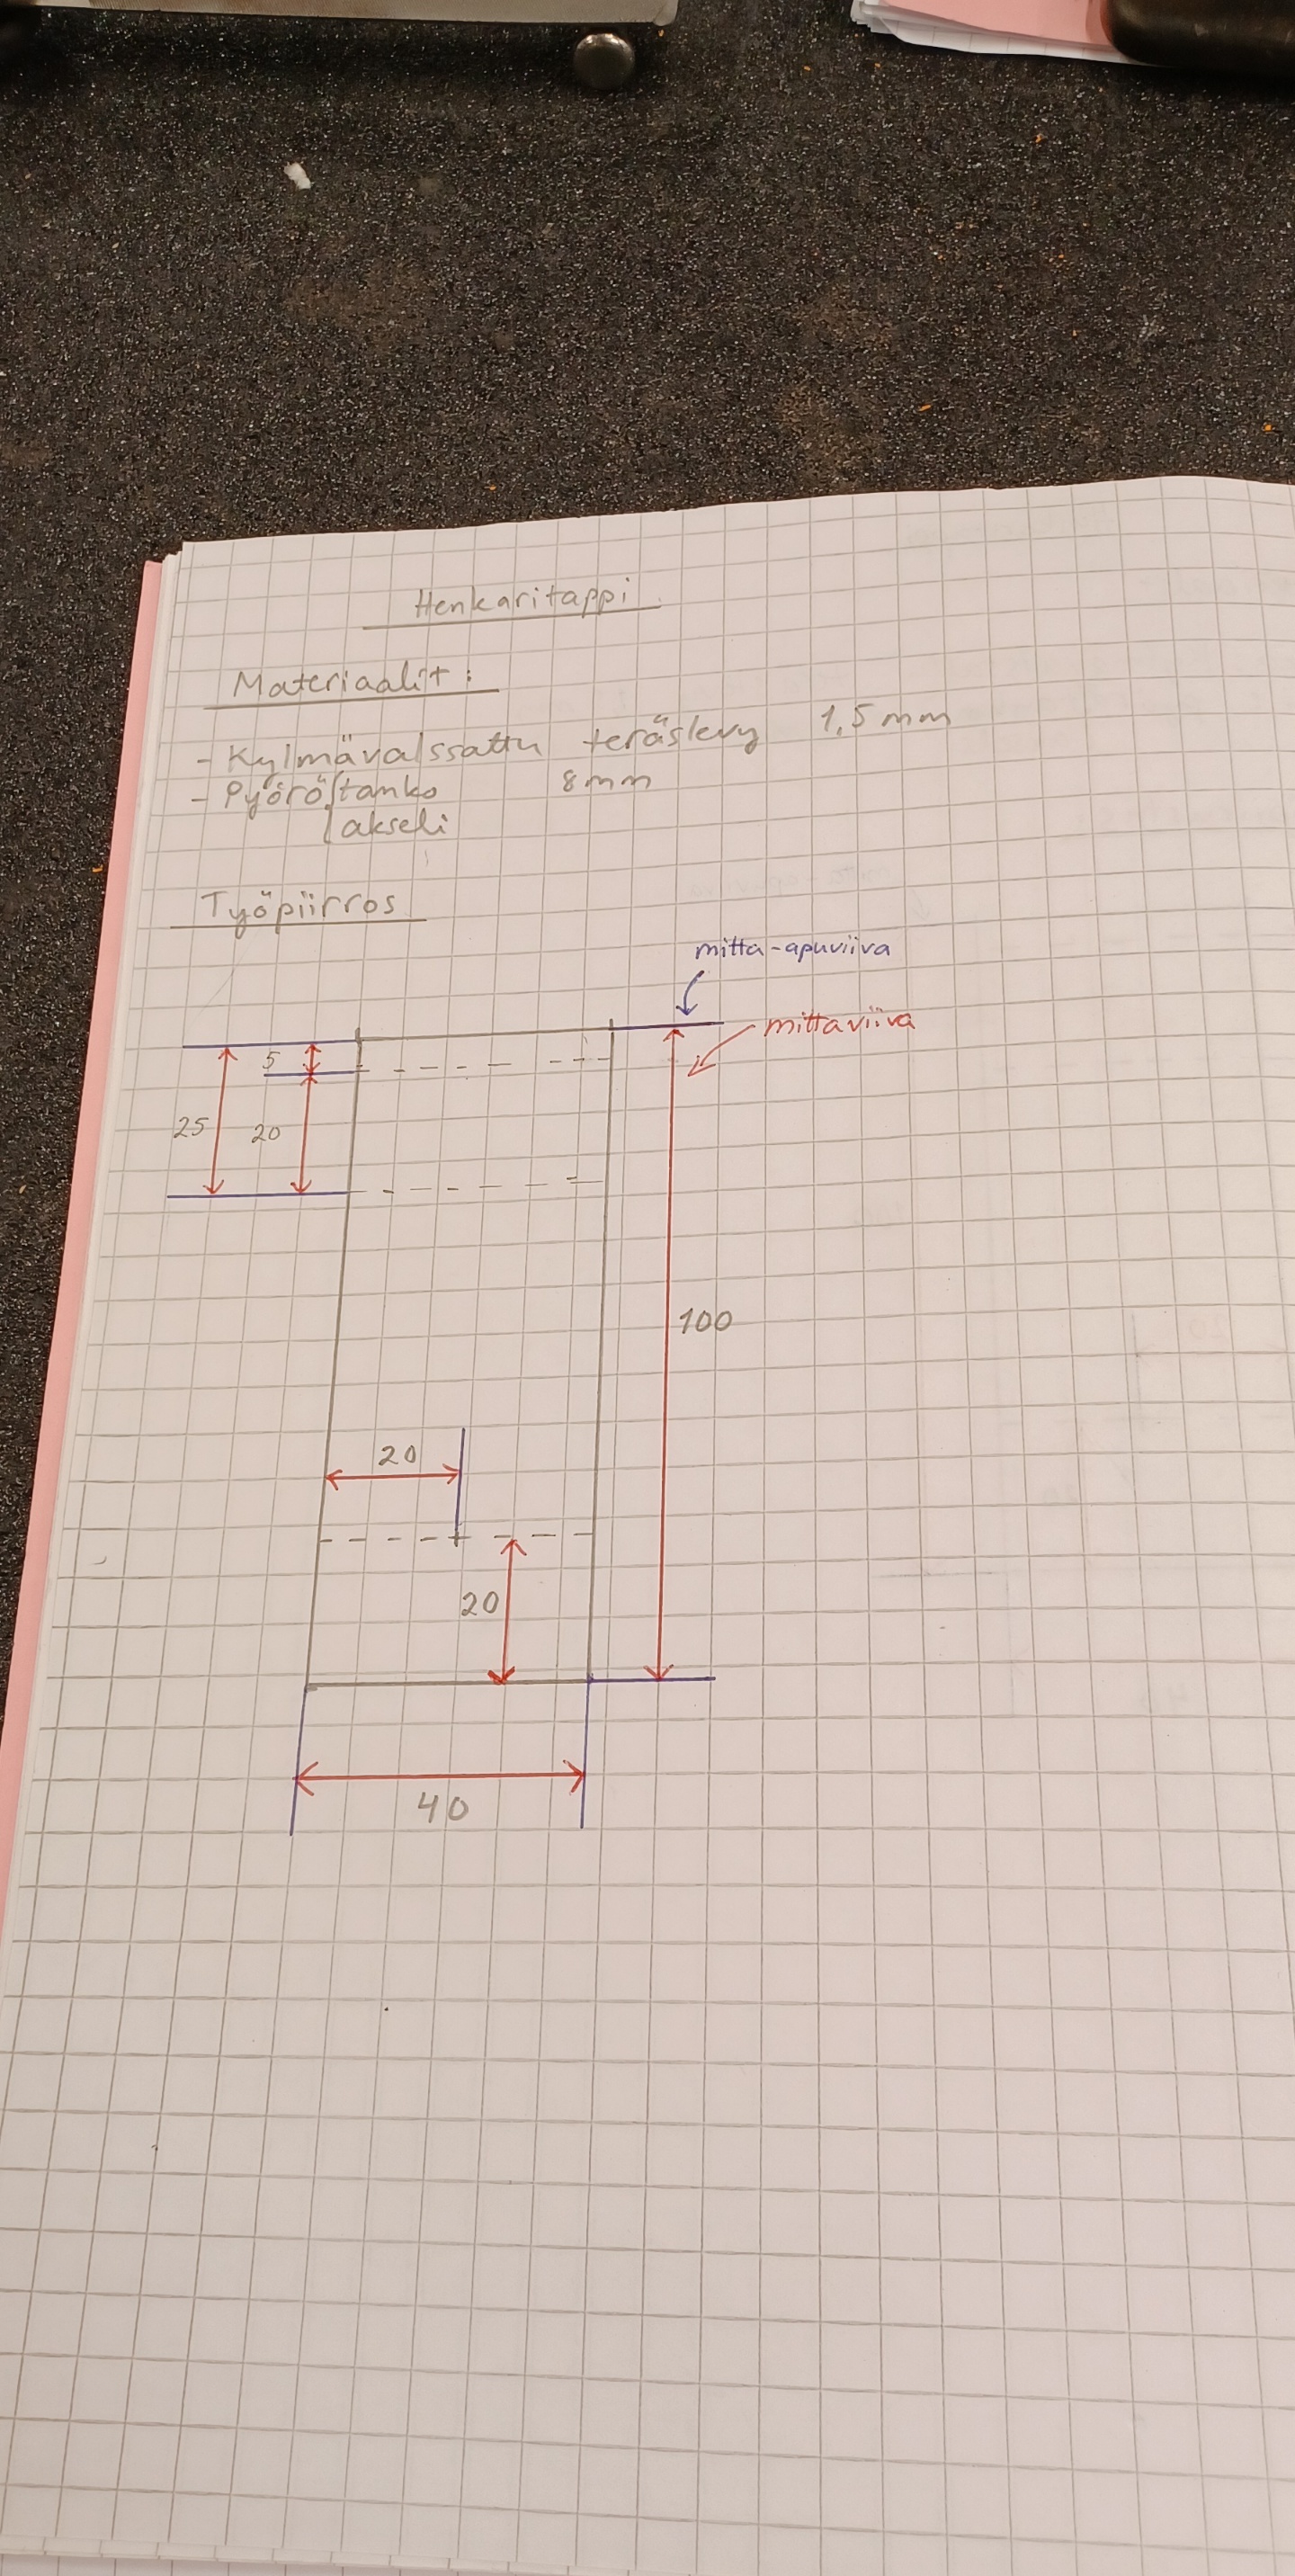 Henkaritappi
Materiaalit:
- Kylmävalssattu teräslevy 1,5 mm
- Pyörötanko 8 mm
akseli
Työpiirros
mitta-apuviiva
mittaviiva
5
25
20
100
20
20
40